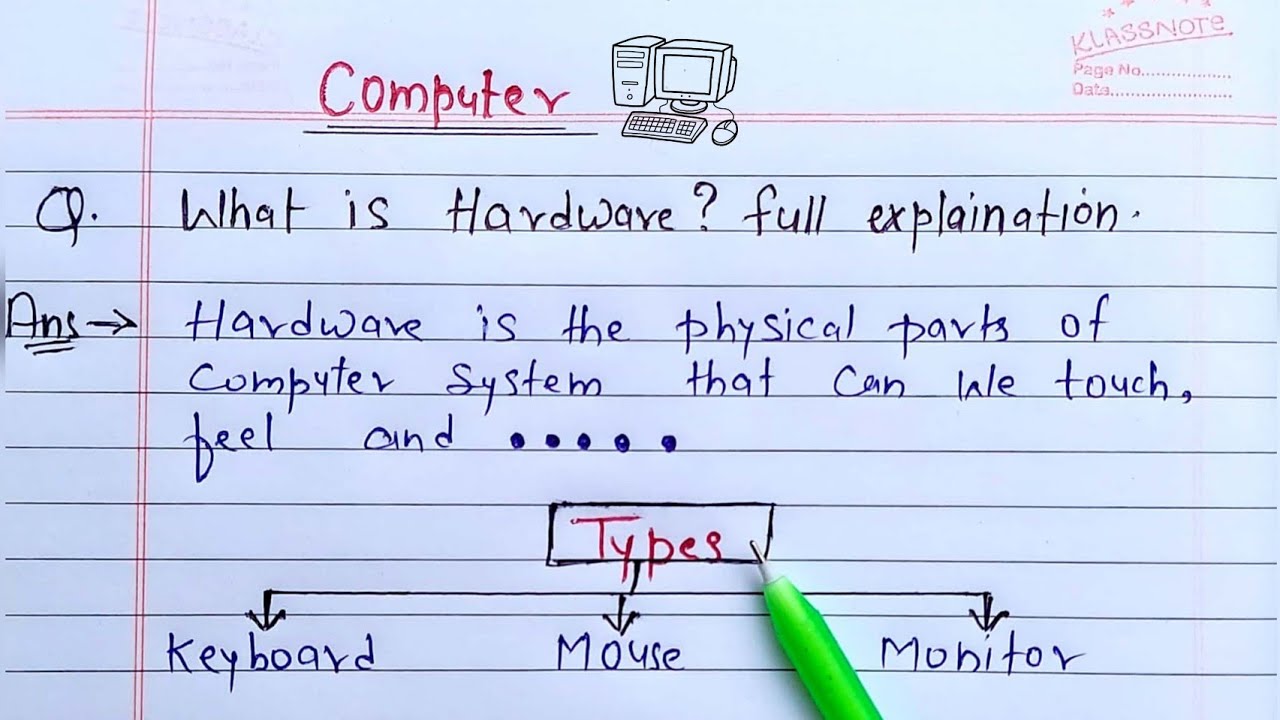 KLASSNOTE
Page No..................
Data.........................
Computer
Q. What is Hardware? full explaination.
Ans → Hardware is the physical parts of
Computer System that can we touch,
feel and •••••
Types
Keyboard Mouse Monitor